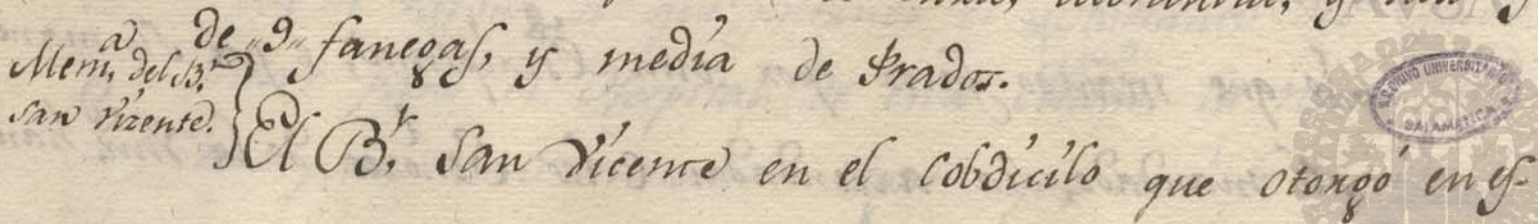 de 9 fanegas, y media de Prados.
Mem.ª del B.r
San Vizente.
El B.r San Vicente en el Cobdicilo que otorgó en es-
ARCHIVO UNIVERSITARIO
SALAMANCA